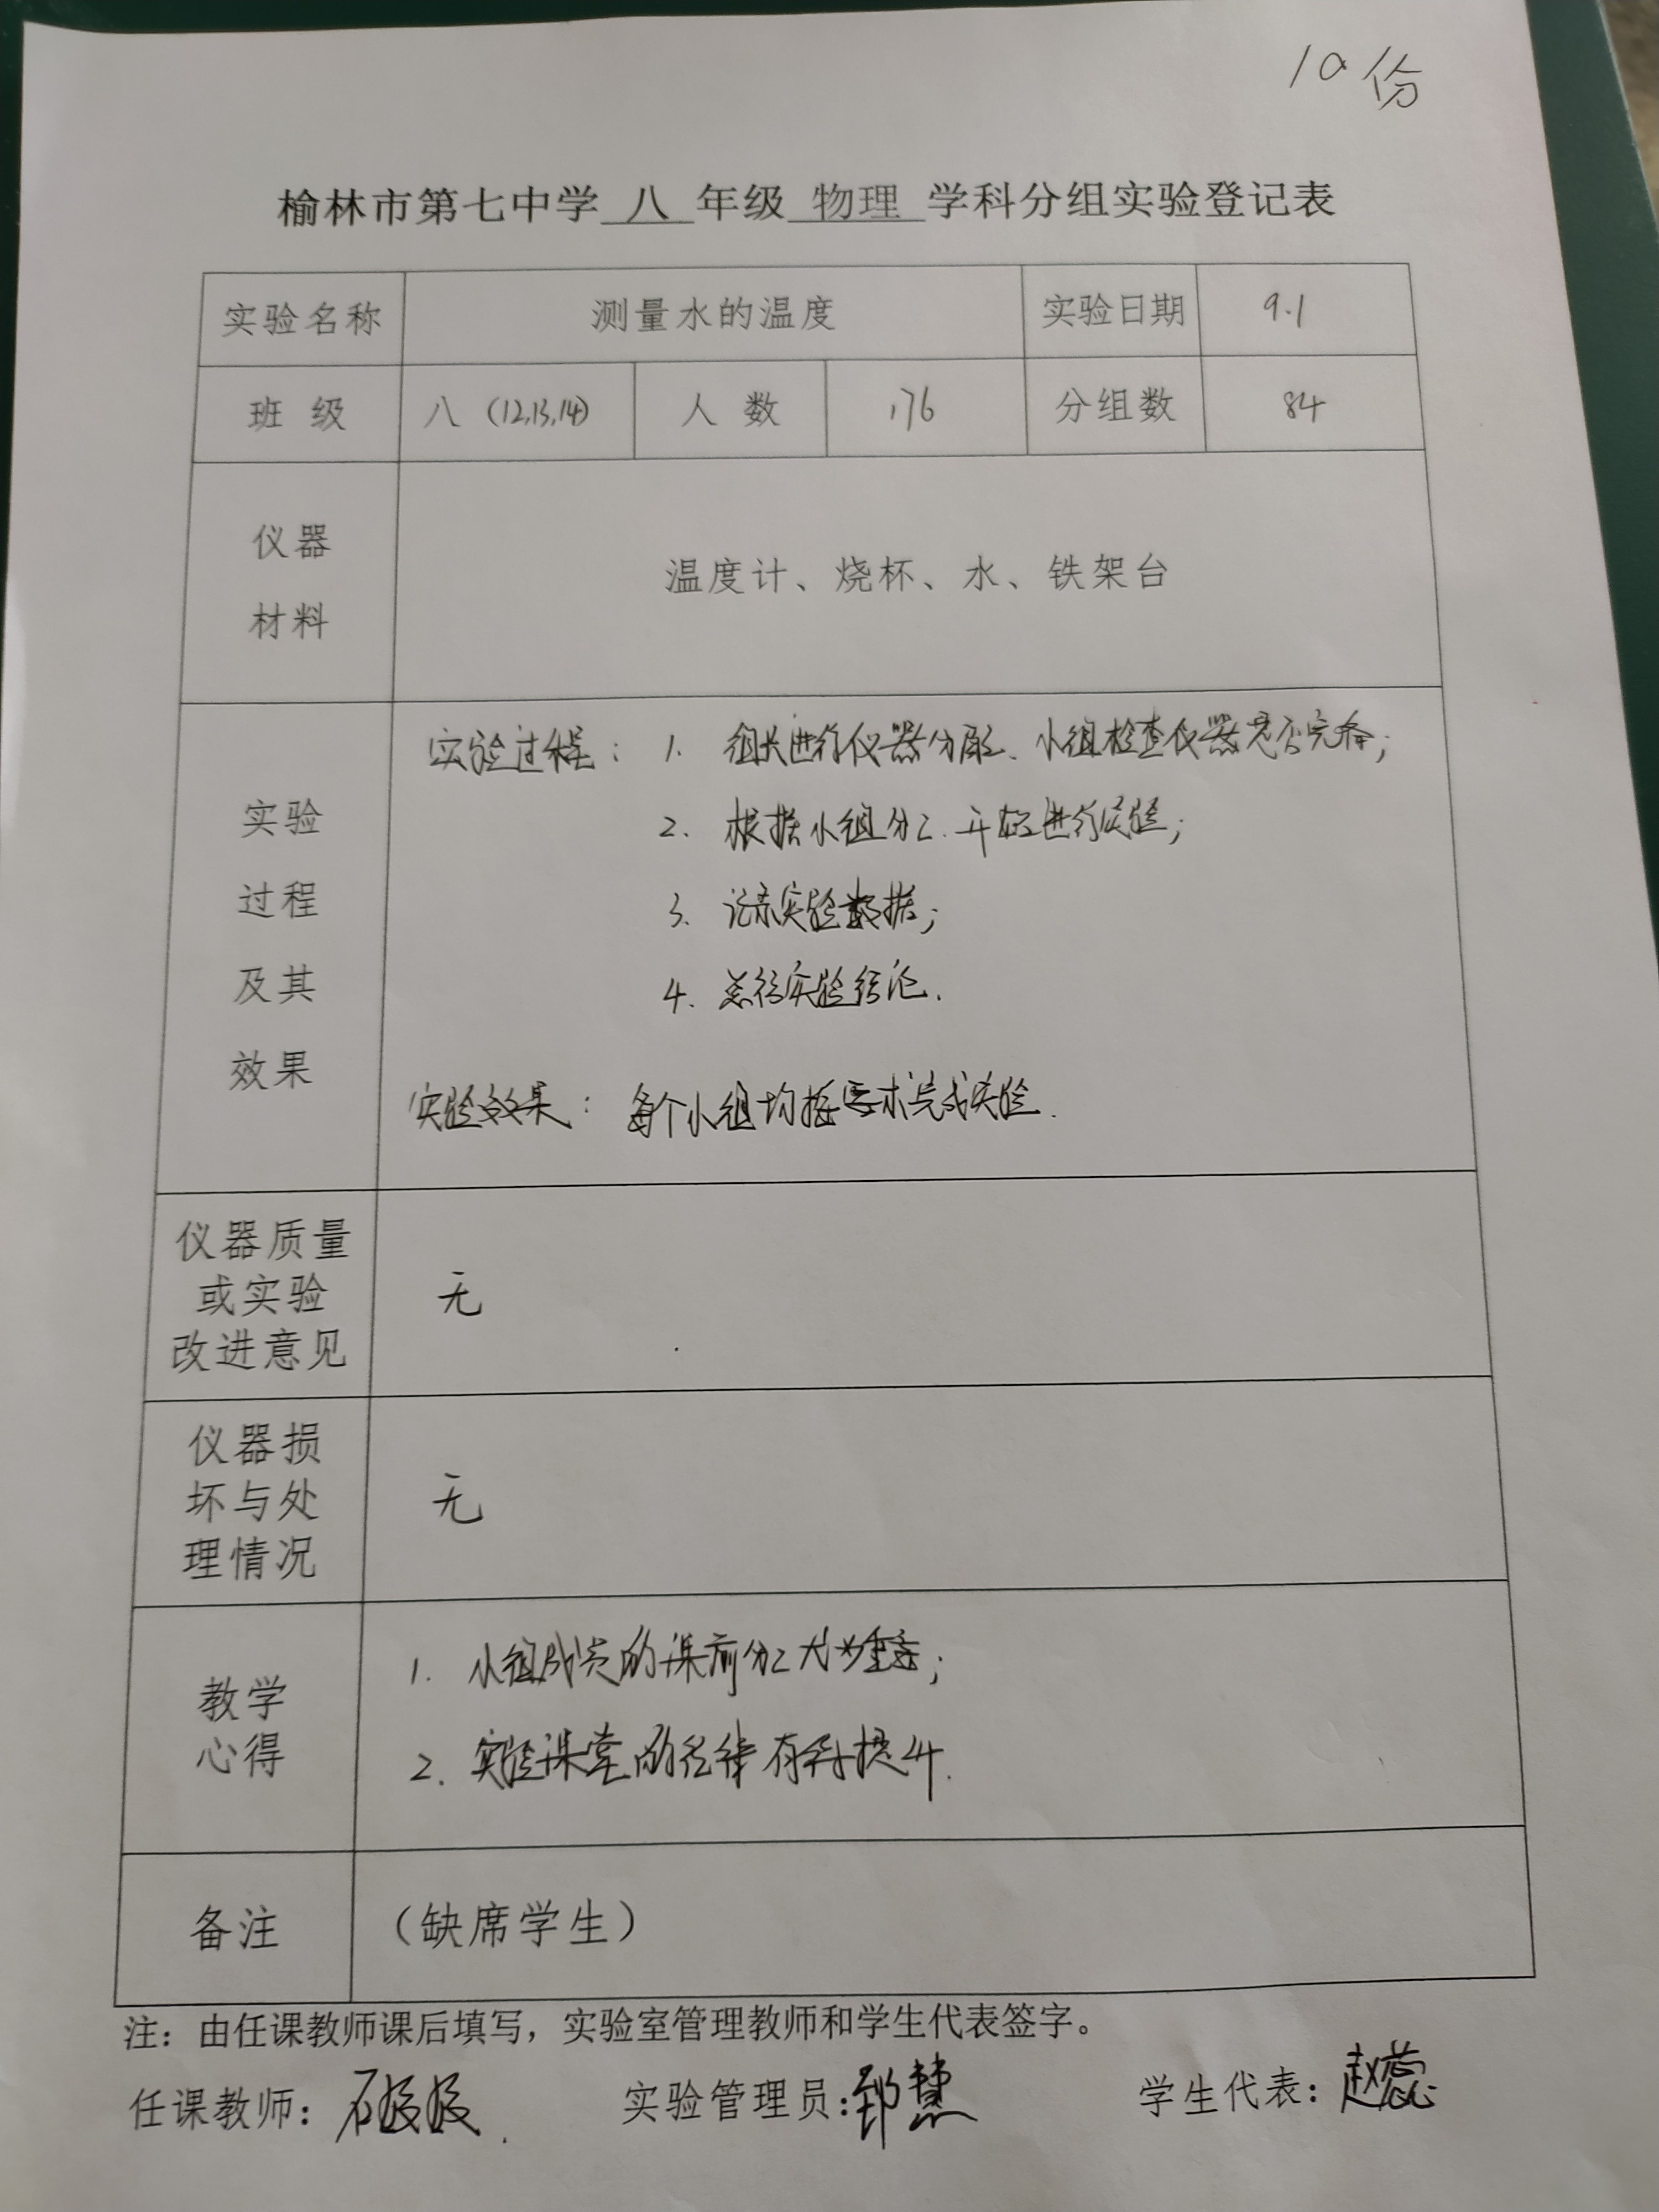 10份
榆林市第七中学 八 年级 物理 学科分组实验登记表
实验名称 测量水的温度 实验日期 9.1
班 级 八 (12,13,14) 人 数 176 分组数 84
仪器
材料
温度计、烧杯、水、铁架台
实验
过程
及其
效果
实验过程： 1. 组长进行仪器分配、小组检查仪器是否完备；
2. 根据小组分工.开始进行实验；
3. 记录实验数据；
4. 总结实验结论.
实验效果： 每个小组均按要求完成实验.
仪器质量
或实验
改进意见
无
仪器损
坏与处
理情况
无
教学
心得
1. 小组成员的课前分工尤为重要；
2. 实验课堂的纪律有待提升.
备注
（缺席学生）
注：由任课教师课后填写，实验室管理教师和学生代表签字。
任课教师： 实验管理员： 学生代表：赵蕊